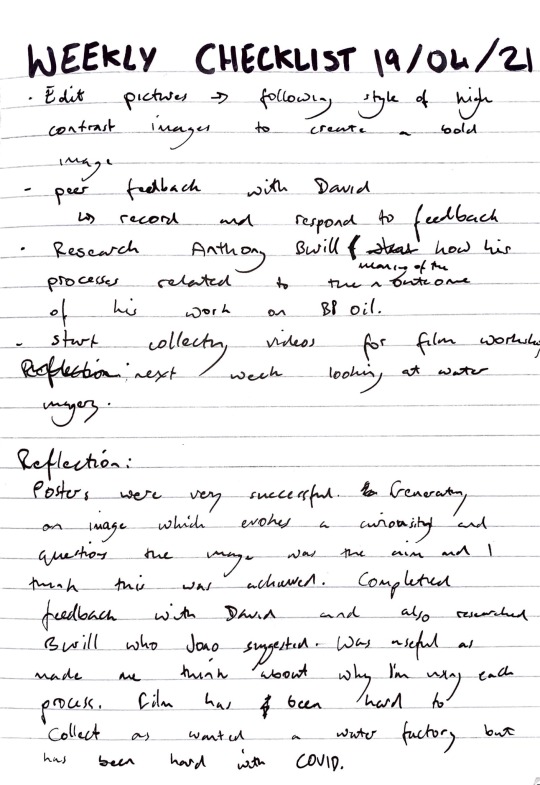 WEEKLY CHECKLIST 19/04/21
· Edit pictures → following style of high
contrast images to create a bold
image
- peer feedback with David
↳ record and respond to feedback
· Research Anthony Burill & how his
meaning of the
processes related to the ^ outcome
of his work on BP oil.
- start collecting videos for film workshop
Reflection: next week looking at water
imagery.
Reflection:
Posters were very successful. Generating
an image which evokes a curiosity and
question the image was the aim and I
think this was achieved. Completed
feedback with David and also researched
Burill who Joao suggested. Was useful as
made me think about why I'm using each
process. Film has been hard to
collect as wanted a water factory but
has been hard with COVID.